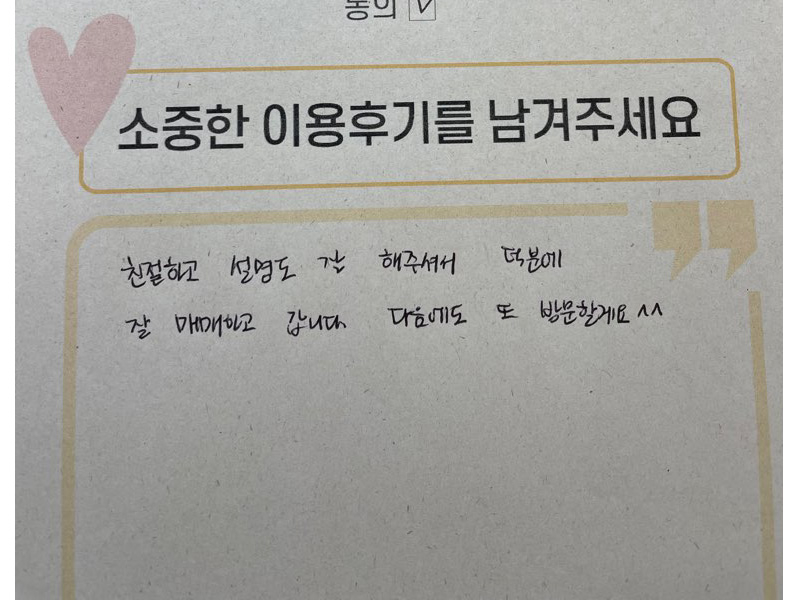 동의 ☑
소중한 이용후기를 남겨주세요
친절하고 설명도 잘 해주셔서 덕분에
잘 매매하고 갑니다 다음에도 또 방문할게요 ^^